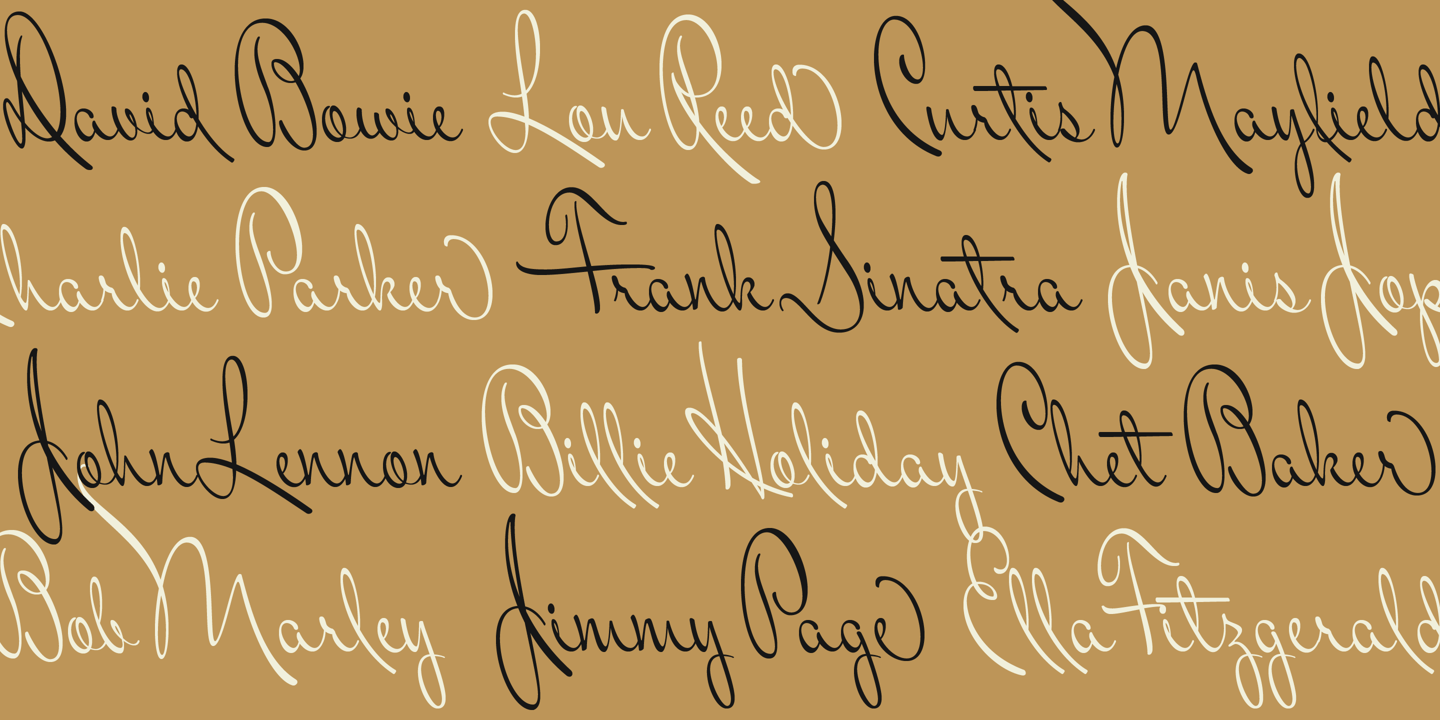 David Bowie Lou Reed Curtis Mayfield
harlie Parker Frank Sinatra Janis Jop
John Lennon Billie Holiday Chet Baker
Bob Marley Jimmy Page Ella Fitzgerald